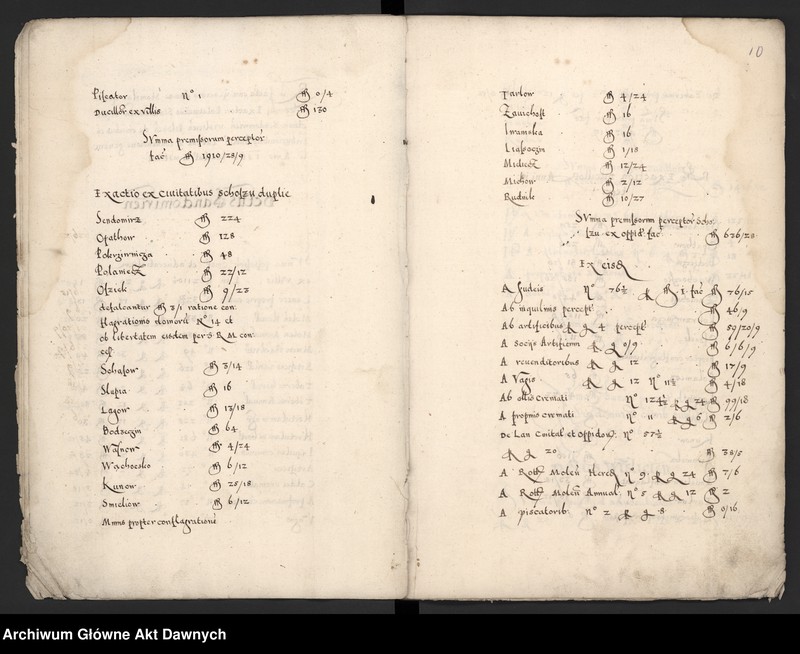 Piscator N° 1 fl 0/4
Ducillor ex villis fl 130
Summa premissorum perceptor
fac fl 1910/28/9
Exactio ex Civitatibus schoszu duplic
Sendomirz fl 224
Opathow fl 128
Pokrziwnicza fl 48
Polaniecz fl 22/12
Osziek fl 9/23
defalcantur fl 3/1 ratione con
flagrationis domorum N° 14 et
ob libertatem eisdem per S R M con
ces
Schasow fl 3/14
Slupia fl 16
Lagow fl 13/18
Bodzecin fl 64
Wasniow fl 4/24
Wachoczko fl 6/12
Kunow fl 25/18
Smielow fl 6/12
Minus propter conflagratione
10
Tarlow fl 4/24
Zawichost fl 16
Iwaniska fl 16
Liassoczin fl 1/18
fl 12/24
Michow fl 2/12
Rudnik fl 10/27
Summa premissorum perceptor Scho
szu ex oppid fac fl 626/28
Ex eisd
A Judeis N° 76½ fl 1 fac fl 76/15
Ab inquilinis percept fl 46/9
Ab artificibus a g 4 percept fl 59/20/9
A socijs Artificum a g 0/9 fl 6/6/9
A revenditoribus a g 12 fl 17/9
A Vagis a g 12 N° 11½ fl 4/18
Ab ollis Cremati N° 124½ a g 24 fl 99/18
A propinis cremati N° 11 a g 6 fl 2/6
De Lan Civital et Oppidor N° 57½
a g 20 fl 38/5
A Roth Molen Hered N° 9 a g 24 fl 7/6
A Roth Molen Annual N° 5 a g 12 fl 2
A piscatorib N° 2 a g 8 fl 0/16
Archiwum Główne Akt Dawnych